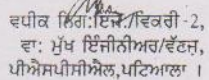 ਵਧੀਕ ਨਿਗ:ਇੰਜੀ:/ਵਿਕਰੀ-2,
ਵਾ: ਮੁੱਖ ਇੰਜੀਨੀਅਰ/ਵੰਣਜ,
ਪੀਐਸਪੀਸੀਐਲ,ਪਟਿਆਲਾ ।